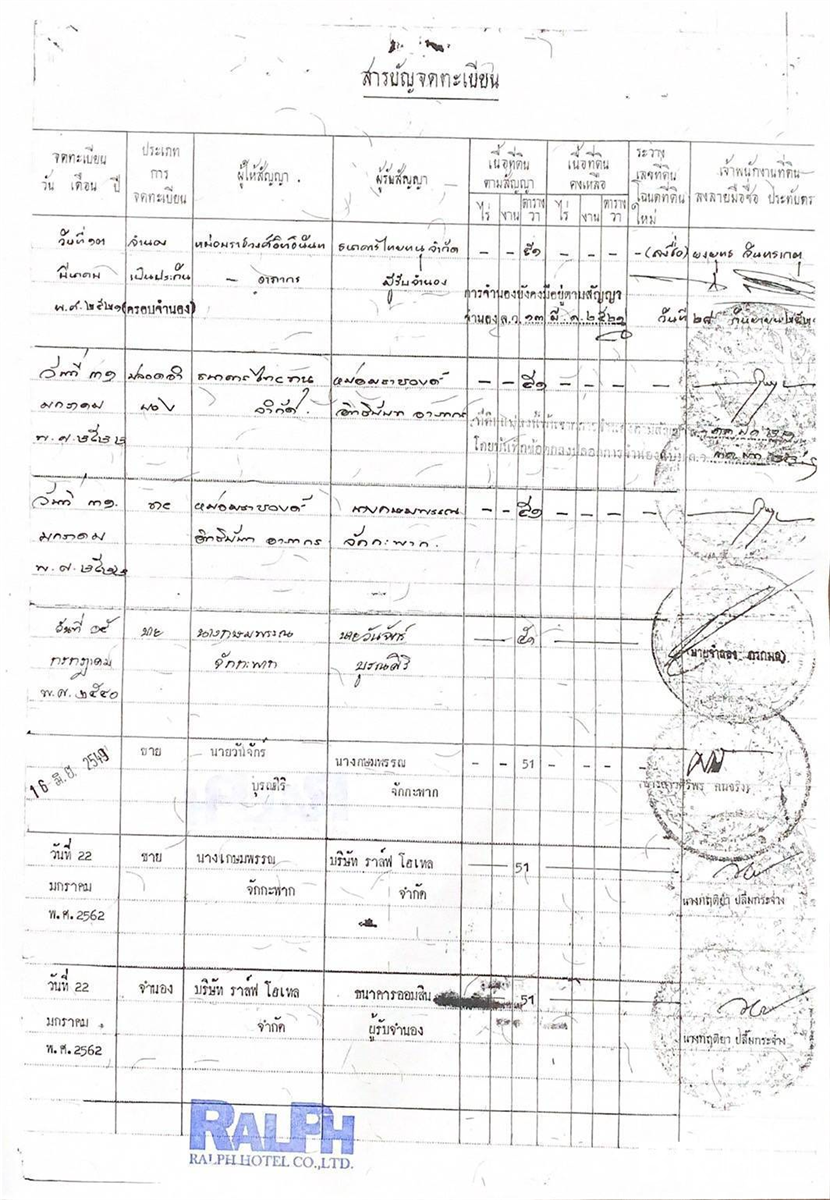 สารบัญจดทะเบียน
จดทะเบียน
วัน เดือน ปี
ประเภท
การ
จดทะเบียน
ผู้ให้สัญญา
ผู้รับสัญญา
เนื้อที่ดิน
ตามสัญญา
ไร่ งาน ตาราง
วา
เนื้อที่ดิน
คงเหลือ
ไร่ งาน ตาราง
วา
ระวาง
เลขที่ดิน
โฉนดที่ดิน
ใหม่
เจ้าพนักงานที่ดิน
ลงลายมือชื่อ ประทับตรา
วันที่ ๑๓ จำนอง หม่อมราชวงศ์อิทธินันท ธนาคารไทยทนุ จำกัด - - ๕๑ - - - - (ลงชื่อ)
มีนาคม เป็นประกัน - อาภากร ผู้รับจำนอง
พ.ศ.๒๕๒๑ (ครอบจำนอง)
การจำนองยังคงมีอยู่ตามสัญญา
จำนอง ล.ว. ๑๓ มี.ค. ๒๕๒๑
วันที่ ๒๘
วันที่ ๓๑ ธนาคารไทยทนุ หม่อมราชวงศ์ - - ๕๑ - - - -
มกราคม จำกัด. อิทธินันท อาภากร
พ.ศ. ๒๕๒๒
วันที่ ๓๑. ขาย หม่อมราชวงศ์ นางเกษมพรรณ - - ๕๑ - - - -
มกราคม อิทธินันท อาภากร จักกะพาก.
พ.ศ. ๒๕๒๒
วันที่ ๑๕ ขาย นางเกษมพรรณ นายวันจักร์ ๕๑
กรกฎาคม จักกะพาก บูรณศิริ
พ.ศ. ๒๕๔๐
(นายจำลอง
16 มิ.ย. 2549 ขาย นายวันจักร์ นางเกษมพรรณ - - 51 - - - -
บูรณศิริ จักกะพาก
วันที่ 22 ขาย นางเกษมพรรณ บริษัท ราล์ฟ โฮเทล 51
มกราคม จักกะพาก จำกัด
พ.ศ. 2562
นางกฤติยา ปลื้มกระจ่าง
วันที่ 22 จำนอง บริษัท ราล์ฟ โฮเทล ธนาคารออมสิน 51
มกราคม จำกัด ผู้รับจำนอง
พ.ศ. 2562
นางกฤติยา ปลื้มกระจ่าง
RALPH
RALPH HOTEL CO.,LTD.